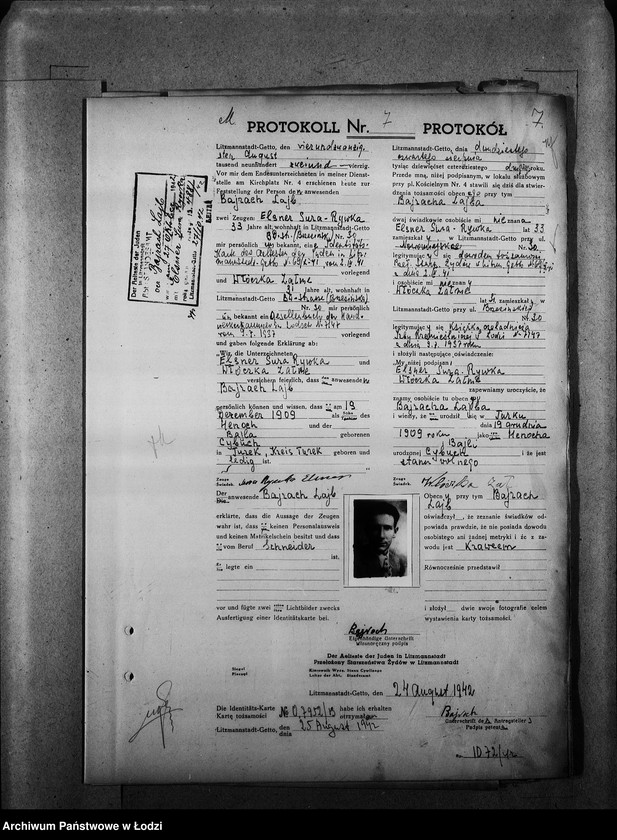 M
PROTOKOLL Nr. 7 PROTOKÓŁ
7.
Litzmannstadt-Getto, den vierundzwanzig-
sten August
tausend neunhundert zweiund vierzig.
Vor mir dem Endesunterzeichneten in meiner Dienst-
stelle am Kirchplatz Nr. 4 erschienen heute zur
Feststellung der Person des anwesenden
Bajrach Lajb
zwei Zeugen: Elsner Sura-Rywka
33 Jahre alt, wohnhaft in Litzmannstadt-Getto
Nr. 30
mir persönlich bekannt, eine Identitäts-
Karte des Aeltesten der Juden in Litz-
mannstadt-Getto
vorlegend
und Włócka Zalme
31 Jahre alt, wohnhaft in
Litzmannstadt-Getto
Nr. 20 mir persönlich
bekannt ein Gesellenbuch der Hand-
werkskammer in Lodsch № 7147
vom 9.7.1937 vorlegend
und gaben folgende Erklärung ab:
Wir, die Unterzeichneten
Elsner Sura Rywka und
Włócka Zalme
versichern feierlich, dass anwesende
Bajrach Lajb
persönlich können und wissen, dass am 19
Dezember 1909 als des
Henoch und der
Bajla geborenen
Cybuch
in Turek, Kreis Turek geboren und
ledig ist.
Zeuge
Świadek
Sura Rywka Elsner
Der anwesende Bajrach Lajb
erklärte, dass die Aussage der Zeugen
wahr ist, dass keinen Personalausweis
und keinen Matrikelschein besitzt und dass
vom Beruf Schneider
ist,
legte ein
vor und fügte zwei Lichtbilder zwecks
Ausfertigung einer Identitätskarte bei.
Litzmannstadt-Getto, dnia dwudziestego
czwartego sierpnia
tysiąc dziewięćset czterdziestego drugiego roku.
Przede mną, niżej podpisanym, w lokalu służbowym
przy pl. Kościelnym Nr. 4 stawili się dziś dla stwier-
dzenia tożsamości obecnego przy tym
Bajracha Lajba
dwaj świadkowie osobiście mi nieznana
Elsner Sura-Rywka lat 33
zamieszkała w Litzmannstadt-Getto przy ul.
Nr. 30
legitymujący się dowodem tożsamości
z dnia 2.8.41
i osobiście mi nieznany
Włócka Zalme
lat 31 zamieszkały w
Litzmannstadt-Getto przy ul. Brzezińskiej
Nr. 20
legitymujący się książką czeladniczą
Izby Rzemieślniczej w Łodzi № 7147
z dnia 9.7.1937 roku
i złożyli następujące oświadczenie:
My niżej podpisani
Elsner Sura-Rywka
Włócka Zalme
zapewniamy uroczyście, że
znamy osobiście tu obecnego
Bajracha Lajba
i wiemy, że urodził się w Turku
dnia 19 grudnia
1909 roku jako Henocha
i Bajli
urodzonej Cybuch i że jest
stanu wolnego
Zeuge
Świadek
Obecny przy tym Bajrach
Lajb
oświadczył, że zeznanie świadków od-
powiada prawdzie, że nie posiada dowodu
osobistego ani żadnej metryki i że z za-
wodu jest Krawcem
Równocześnie przedstawił
i złożył dwie swoje fotografie celem
wystawienia karty tożsamości.
Bajrach
Eigenhändige Unterschrift
Własnoręczny podpis
Der Aelteste der Juden in Litzmannstadt
Przełożony Starszeństwa Żydów w Litzmannstadt
Siegel
Pieczęć
Litzmannstadt-Getto, den 24 August 1942
Die Identitäts-Karte
Kartę tożsamości
№ 0.7952/B habe ich erhalten
otrzymałem
Litzmannstadt-Getto, den
dnia
25 August 1942
Bajrach
Unterschrift des Antragstellers
Podpis petenta
ID 72/42
Der Aelteste der Juden
Bajrach Lajb
Elsner Sura
Archiwum Państwowe w Łodzi